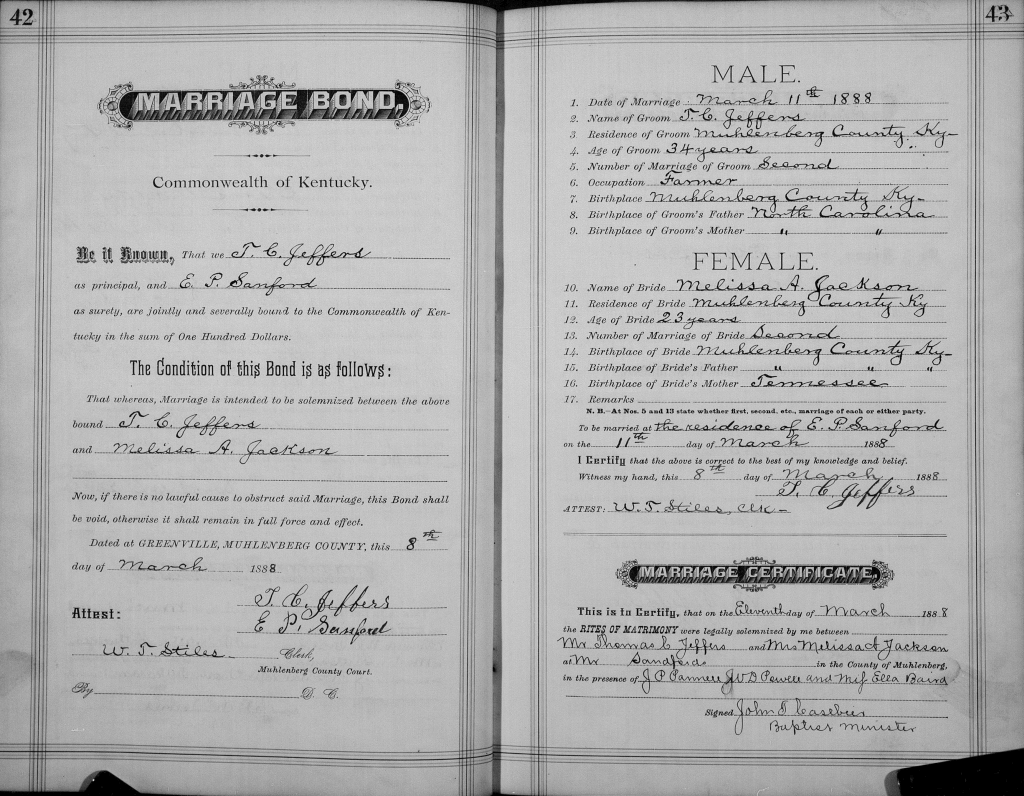 42
MARRIAGE BOND,
Commonwealth of Kentucky.
Be it Known, That we T. C. Jeffers
as principal, and E. P. Sanford
as surety, are jointly and severally bound to the Commonwealth of Ken-
tucky in the sum of One Hundred Dollars.
The Condition of this Bond is as follows:
That whereas, Marriage is intended to be solemnized between the above
bound T. C. Jeffers
and Melissa A. Jackson
Now, if there is no lawful cause to obstruct said Marriage, this Bond shall
be void, otherwise it shall remain in full force and effect.
Dated at GREENVILLE, MUHLENBERG COUNTY, this 8th
day of March 1888.
Attest: T. C. Jeffers
E. P. Sanford
W. T. Stiles Clerk,
Muhlenberg County Court.
By D. C.
43
MALE.
1. Date of Marriage March 11th 1888
2. Name of Groom T. C. Jeffers
3. Residence of Groom Muhlenberg County Ky-
4. Age of Groom 34 years
5. Number of Marriage of Groom Second
6. Occupation Farmer
7. Birthplace Muhlenberg County Ky-
8. Birthplace of Groom's Father North Carolina
9. Birthplace of Groom's Mother " "
FEMALE.
10. Name of Bride Melissa A. Jackson
11. Residence of Bride Muhlenberg County Ky
12. Age of Bride 23 years
13. Number of Marriage of Bride Second
14. Birthplace of Bride Muhlenberg County Ky-
15. Birthplace of Bride's Father " " "
16. Birthplace of Bride's Mother Tennessee
17. Remarks
N. B.—At Nos. 5 and 13 state whether first, second, etc., marriage of each or either party.
To be married at the residence of E. P. Sanford
on the 11th day of March 1888
I Certify that the above is correct to the best of my knowledge and belief.
Witness my hand, this 8th day of March 1888
T. C. Jeffers
ATTEST: W. T. Stiles, Clk-
MARRIAGE CERTIFICATE.
This is to Certify, that on the Eleventh day of March 1888
the RITES OF MATRIMONY were legally solemnized by me between
Mr Thomas C Jeffers and Mrs Melissa A Jackson
at Mr Sandfords in the County of Muhlenberg,
in the presence of J P and Miss Ella Baird
Signed John T Casebier
Baptist Minister